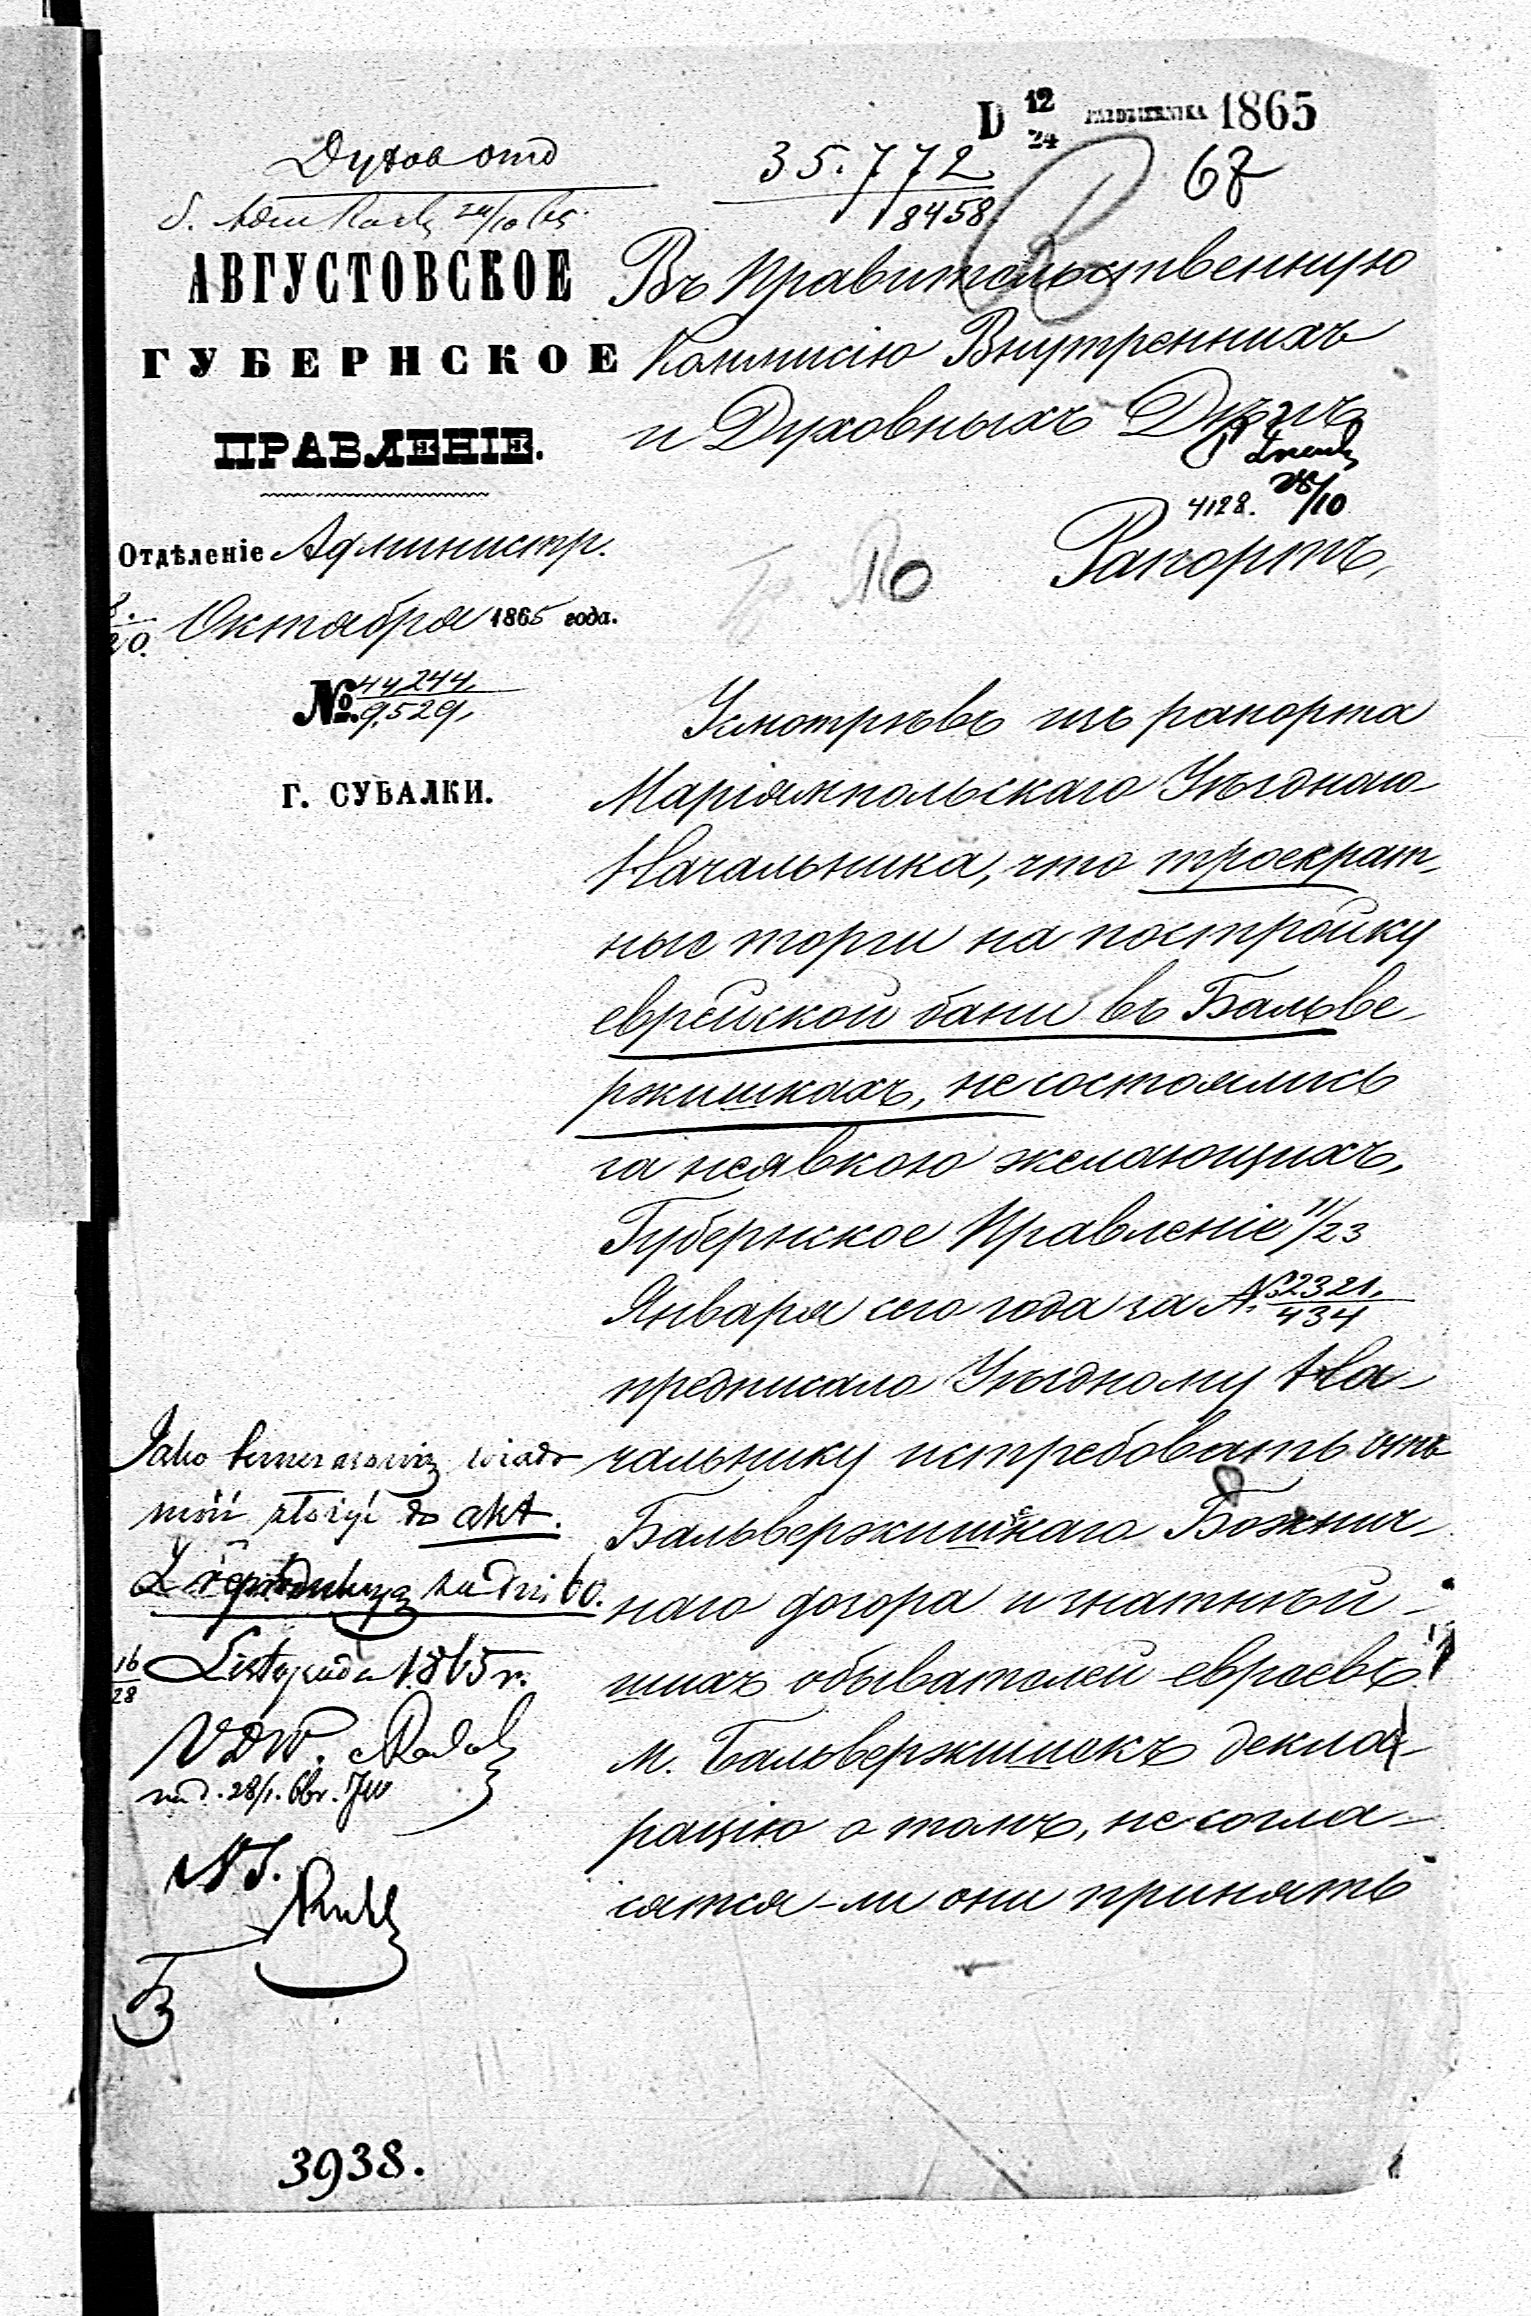 D 12/24 PAŹDZIERNIKA 1865
Духов отд
35.772
8458
67
24/10 65.
АВГУСТОВСКОЕ
ГУБЕРНСКОЕ
ПРАВЛЕНІЕ.
Отдѣленіе Администр.
8./20. Октября 1865 года.
№ 44,244./9,529,
Г. СУВАЛКИ.
Въ Правительственную
Коммисію Внутреннихъ
и Духовныхъ Дѣлъ
4128. 28/10
Рапортъ,
Усмотрѣвъ изъ рапорта
Маріямпольскаго Уѣзднаго
Начальника, что троекрат-
ные торги на постройку
еврейской бани въ Бальве-
ржишкахъ, не состоялись
за неявкою желающихъ,
Губернское Правленіе 11/23
Января сего года за № 2321./434
предписало Уѣздному На-
чальнику истребовать отъ
Бальвержишскаго Божнич-
наго дозора и знатнѣй-
шихъ обывателей евреевъ
м. Бальвержишекъ декла-
рацію о томъ, не согла-
сятся-ли они принять
Jako wiado
mość złożyć do akt.
Z za Dni 60.
16/28 Listopada 1865 r.
VDW.
NS.
3938.